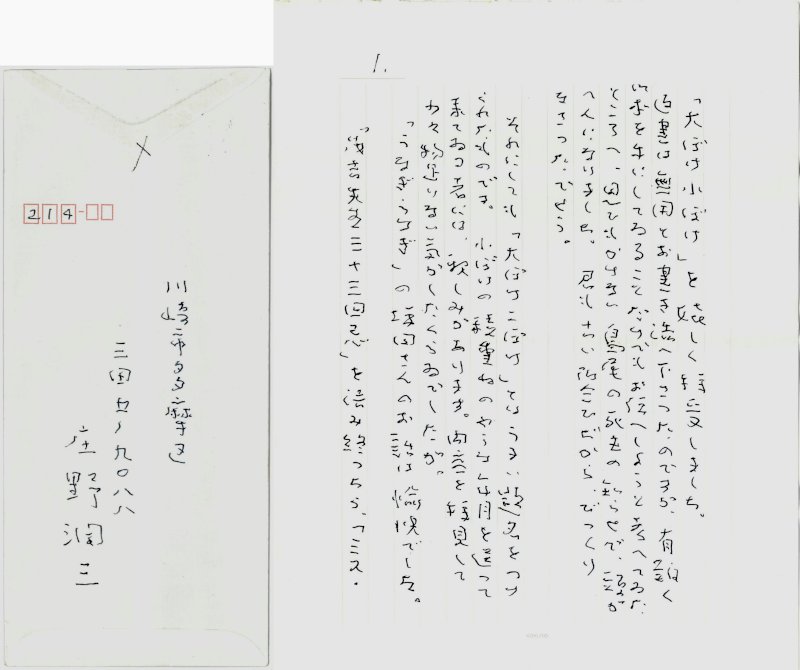 214-
川崎市多摩区
三田五ノ九〇八八
庄野潤三
1.
「大ぼけ小ぼけ」を嬉しく拝受しました。
返書は無用とお書き添へ下さつたのですが、有難く
御本を手にしてゐることだけでもお伝へしようと考へてゐた
ところへ、思ひもかけない島尾の死去の知らせで、が
へんになりました。君も古い附合ひだから、びつくり
なさつたでせう。
それにしても「大ぼけこぼけ」とはうまい題名をつけ
られたものです。小ぼけの積重ねのやうな毎日を送つて
来てゐる者には、親しみがあります。内容を拝見して
少々物足りない気がしたくらゐでしたが。
「うなぎ・うなぎ」のさんのお話は愉快でした。
「先生三十三回忌」を読み終つたら、「ミス・